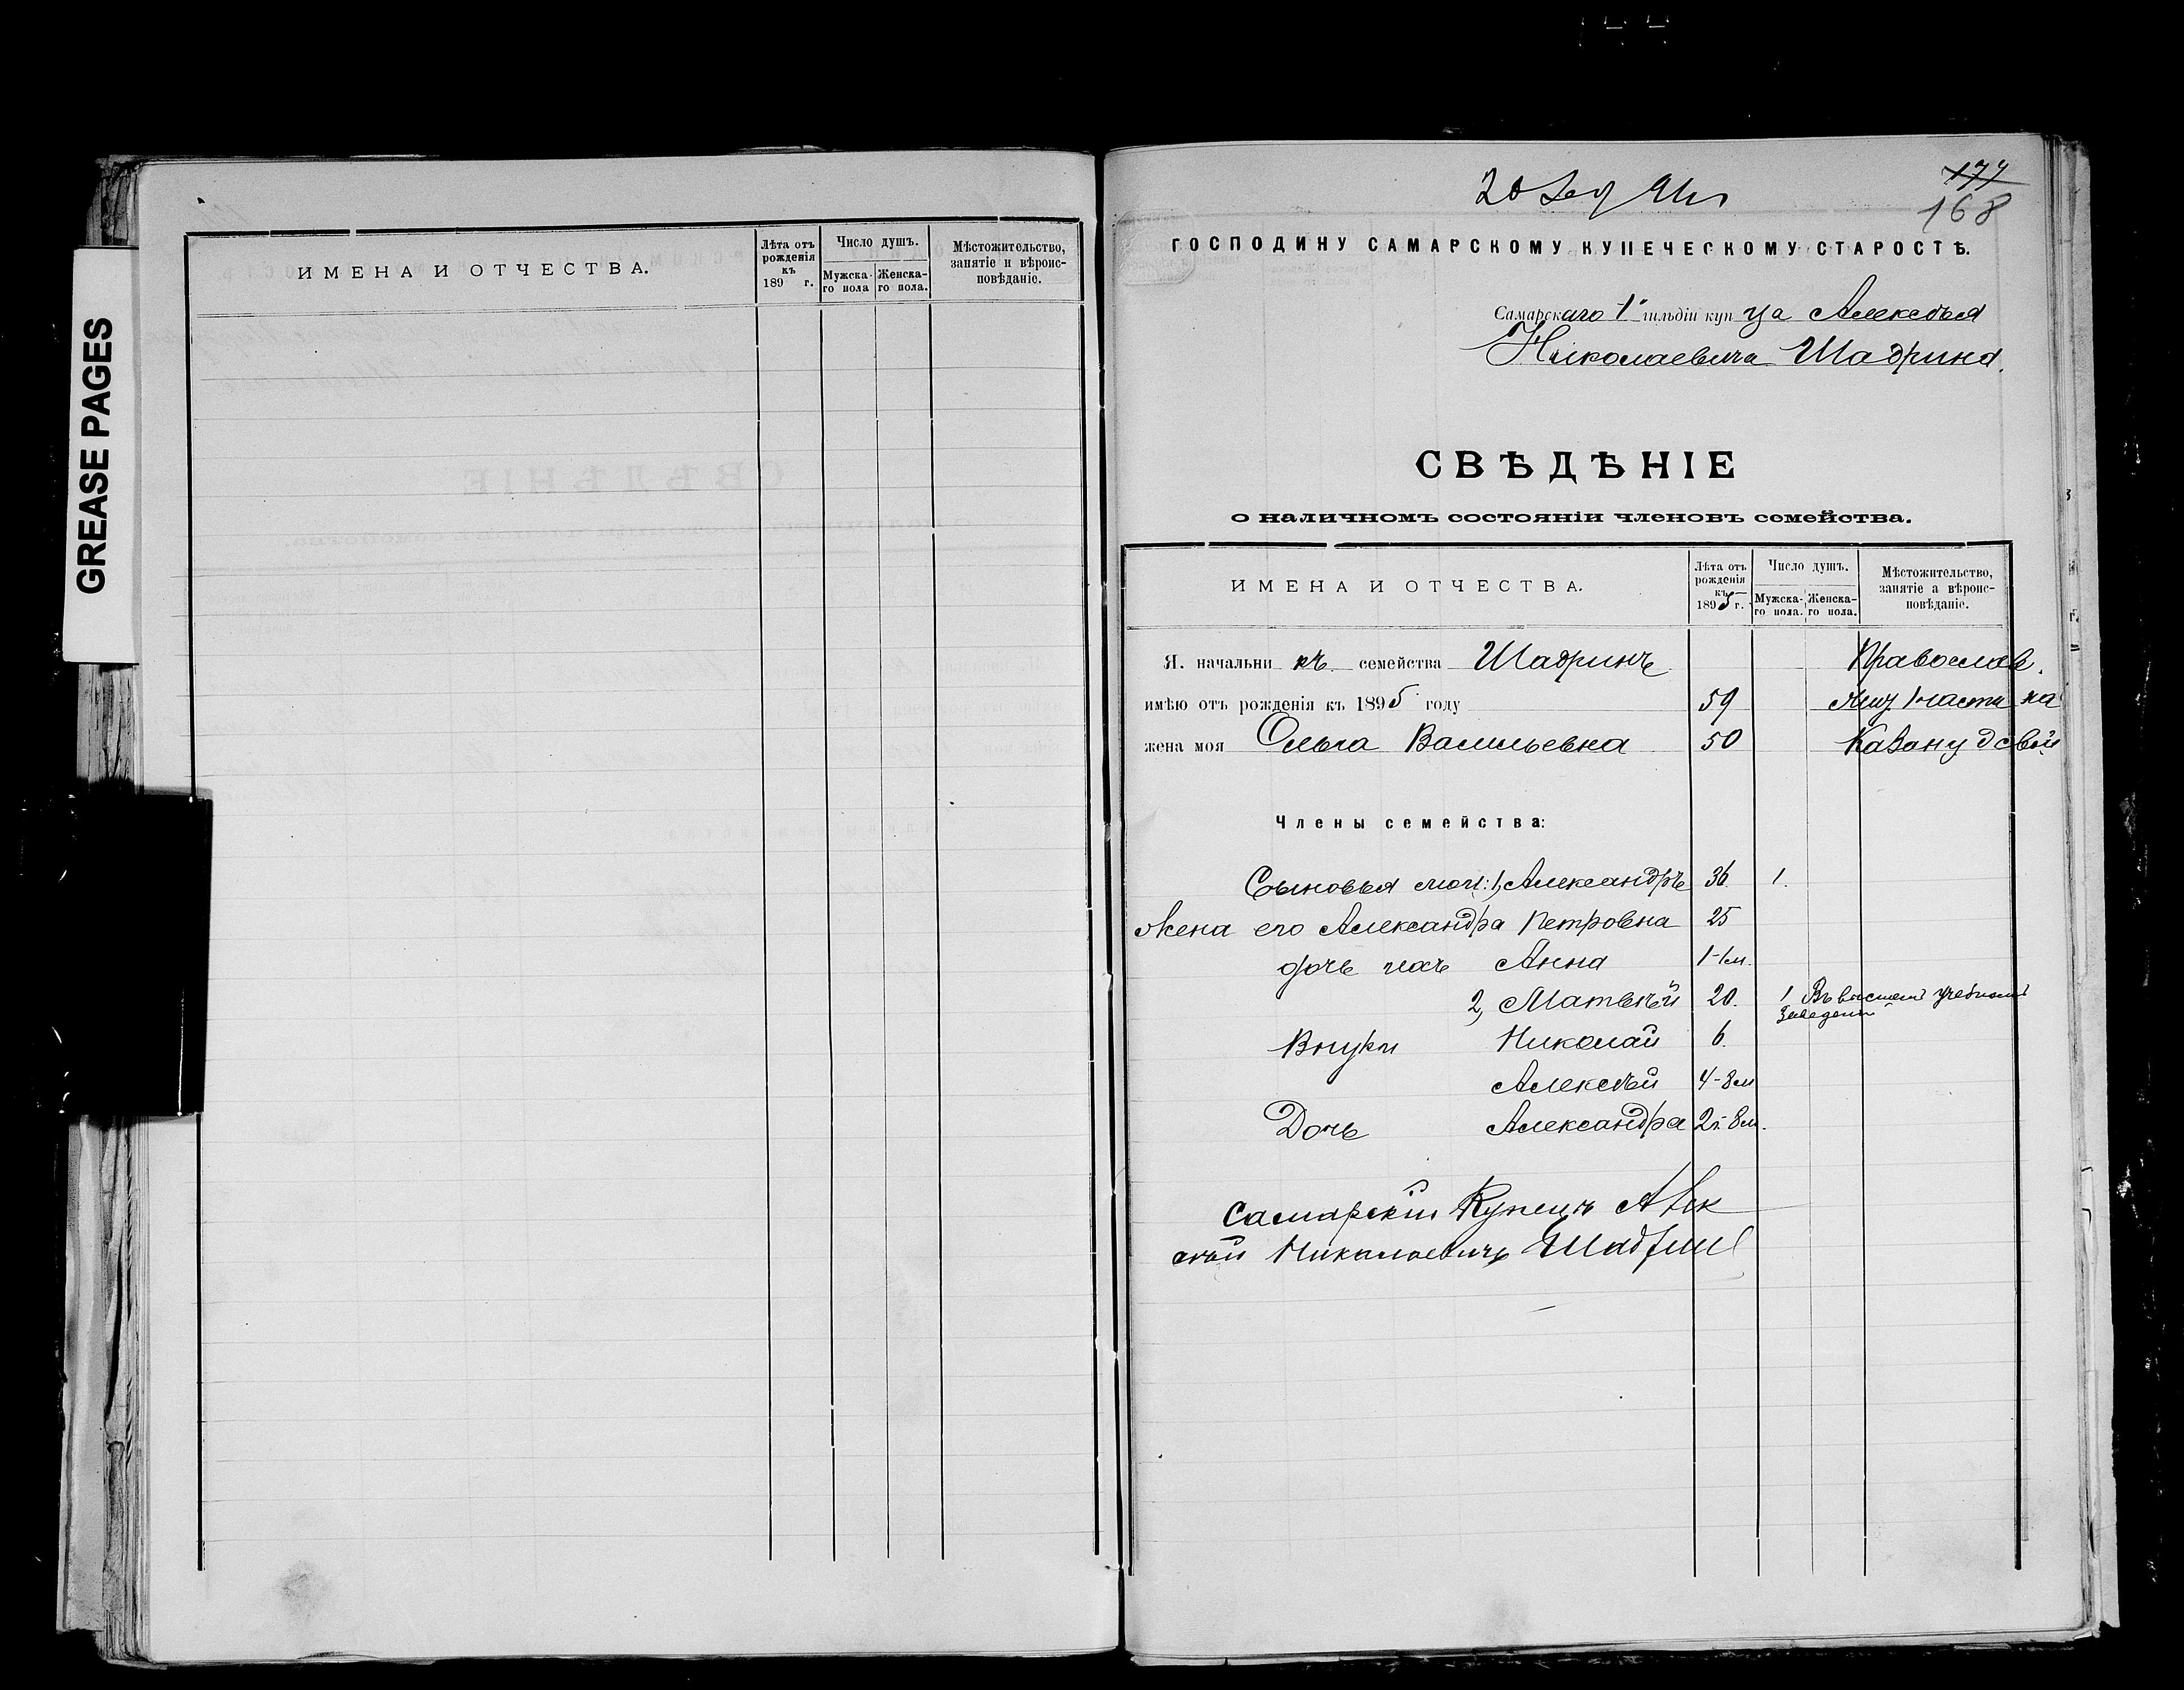 GREASE PAGES
ИМЕНА И ОТЧЕСТВА.
Лѣта отъ рожденія къ 189 г.
Число душъ.
Мужска-го пола
Женска-го пола.
Мѣстожительство, занятіе и вѣроис-повѣданіе.
174
168
ГОСПОДИНУ САМАРСКОМУ КУПЕЧЕСКОМУ СТАРОСТѢ.
Самарскаго 1й гильдіи купца Алексѣя
Николаевича Шадрина.
СВѢДѢНІЕ
о наличномъ состояніи членовъ семейства.
ИМЕНА И ОТЧЕСТВА.
Лѣта отъ рожденія къ 1895 г.
Число душъ.
Мужска-го пола.
Женска-го пола.
Мѣстожительство, занятіе а вѣроис-повѣданіе.
Я. начальникъ семейства Шадринъ Православ.
имѣю отъ рожденія къ 1895 году 59 части на
жена моя Ольга Васильевна 50
Члены семейства:
Сыновья мои: 1, Александръ 36. 1.
Жена его Александра Петровна 25
дочь ихъ Анна 1-1м.
2, Матвѣй 20. 1 Въ высшемъ учебномъ
заведеніи
Внуки Николай 6.
Алексѣй 4-8м
Дочь Александра 2г.8м.
Самарскій Купецъ Алек
сѣй Николаевичъ Шадринъ